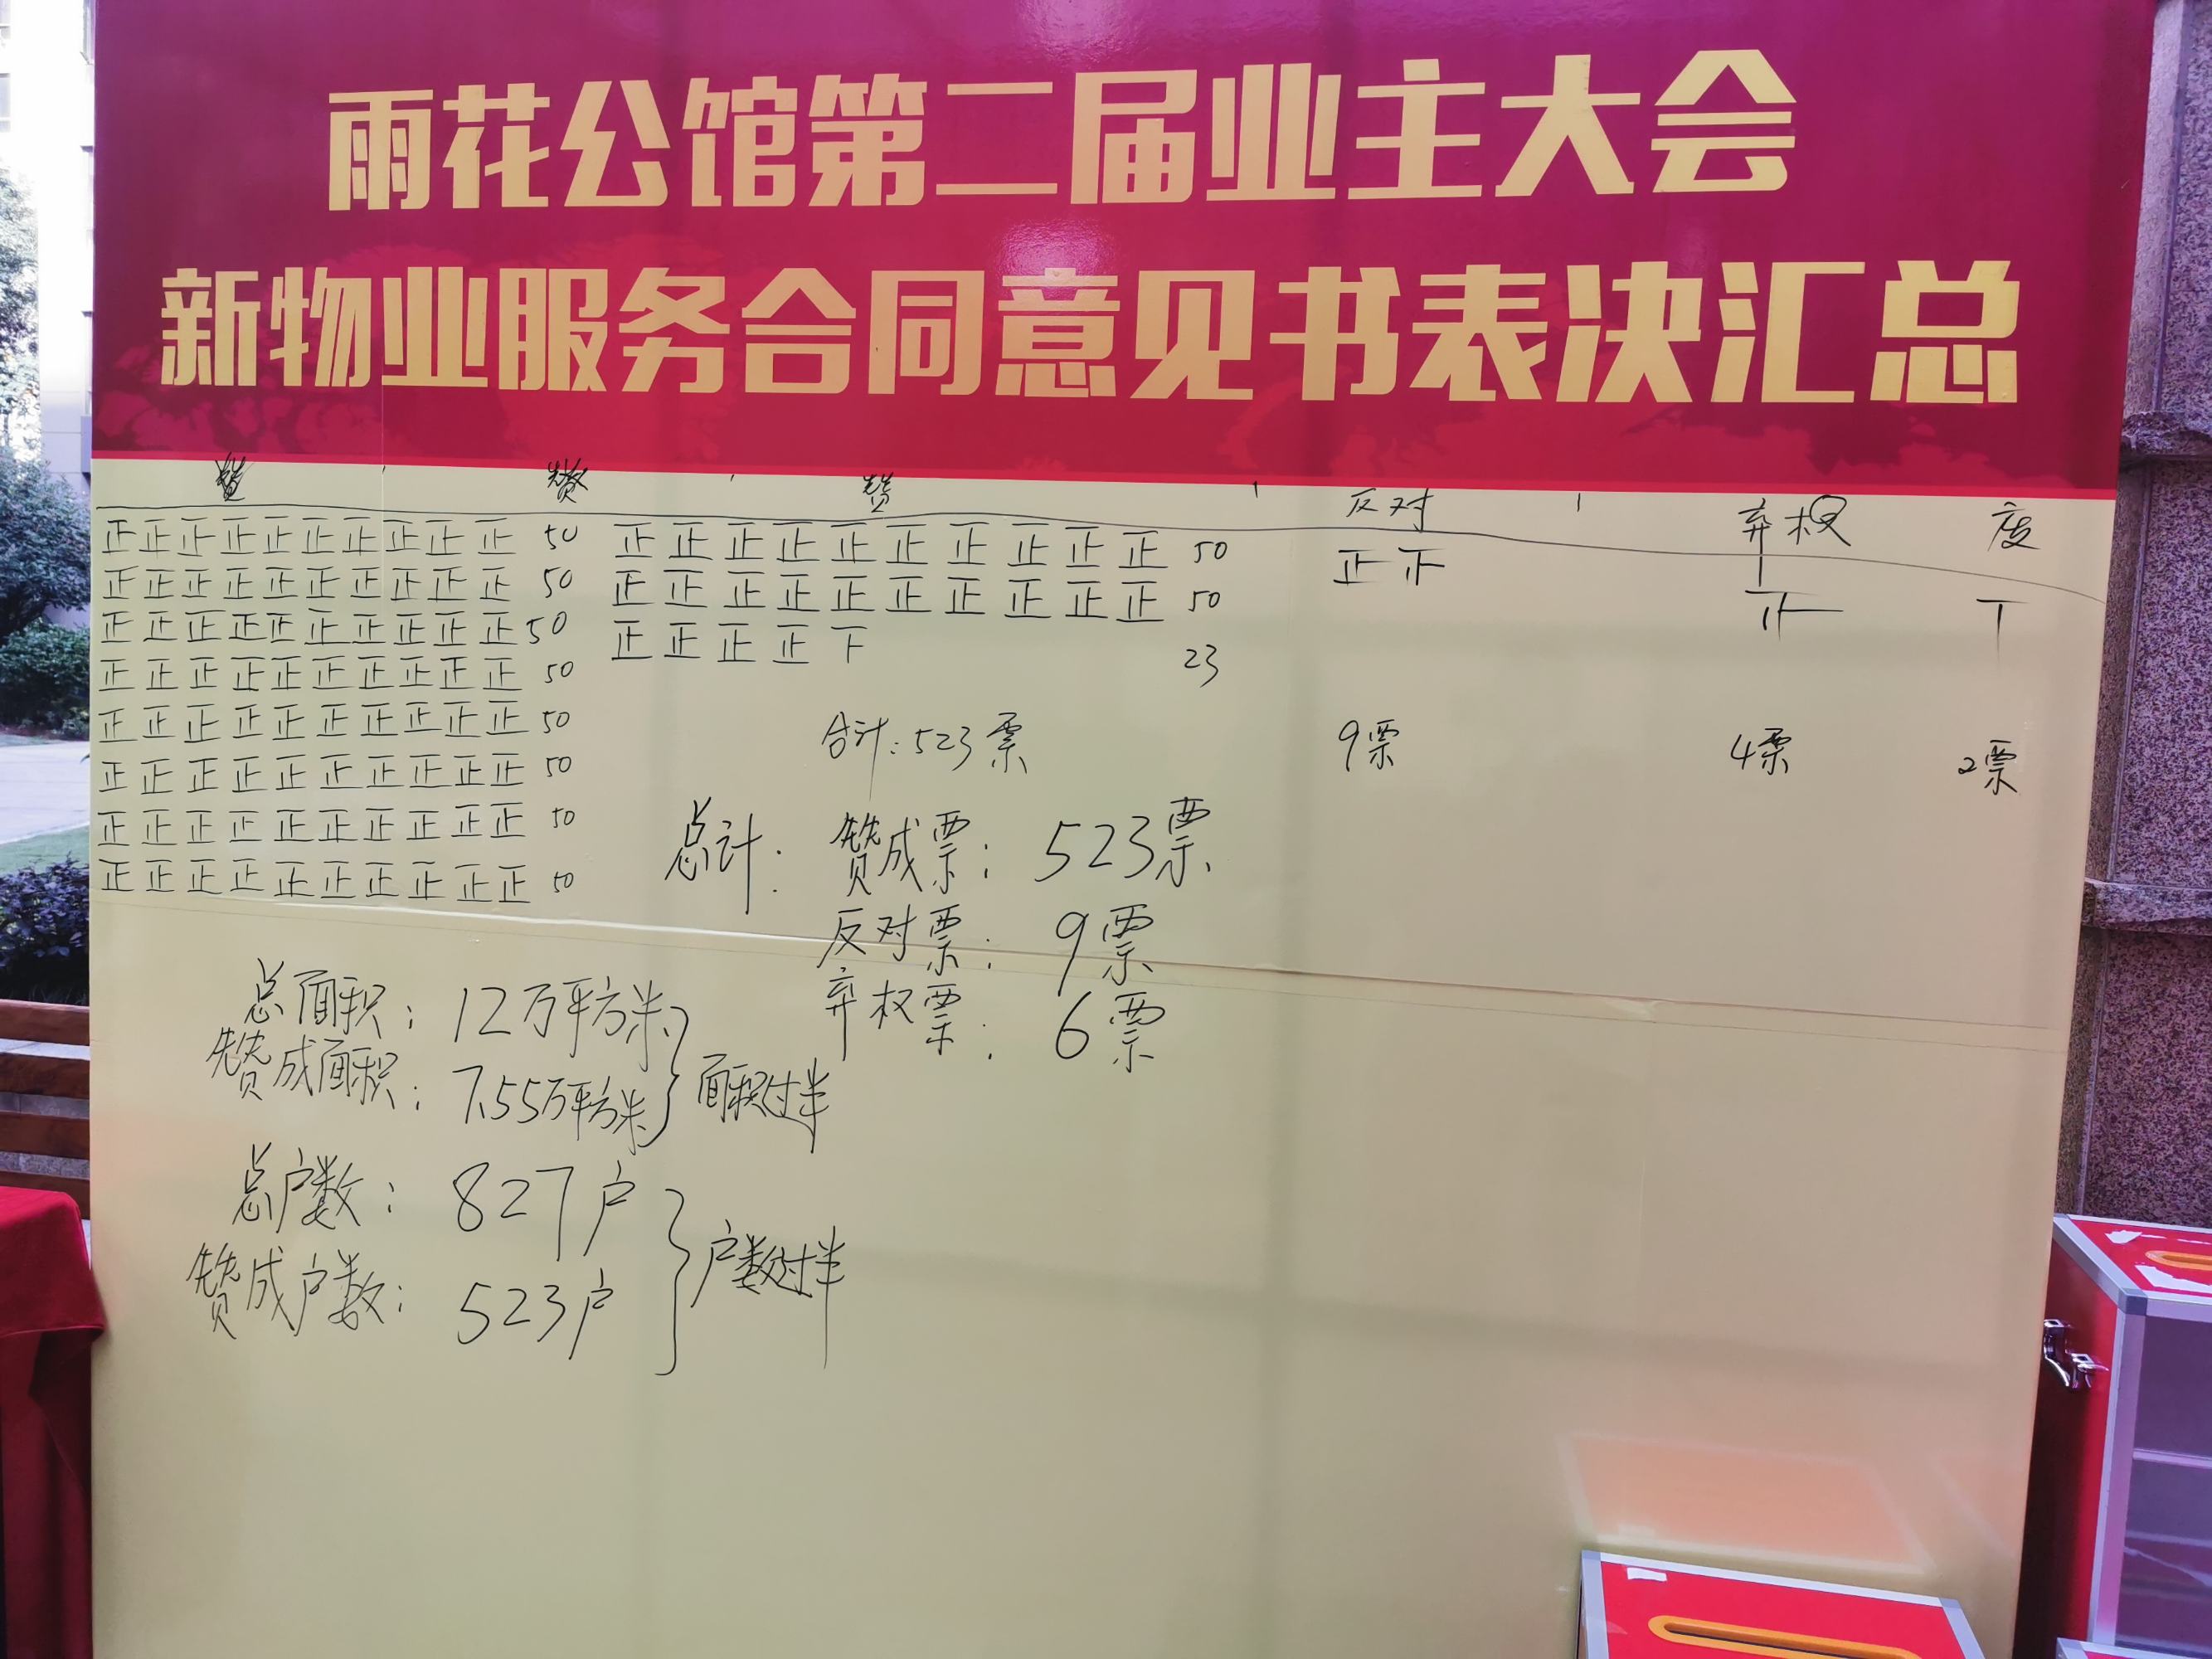 雨花公馆第二届业主大会
新物业服务合同意见书表决汇总
赞 赞 赞 反对 弃权 废
正正正正正正正正正正 50 正正正正正正正正正正 50 正
正正正正正正正正正正 50 正正正正正正正正正正 50
正正正正正正正正正正 50 正正正正下 23
正正正正正正正正正正 50
正正正正正正正正正正 50
正正正正正正正正正正 50
正正正正正正正正正正 50
正正正正正正正正正正 50
合计:523票 9票 4票 2票
总计: 赞成票: 523票
反对票: 9票
弃权票: 6票
总面积: 12万平方米
赞成面积: 7.55万平方米
面积过半
总户数: 827户
赞成户数: 523户
户数过半